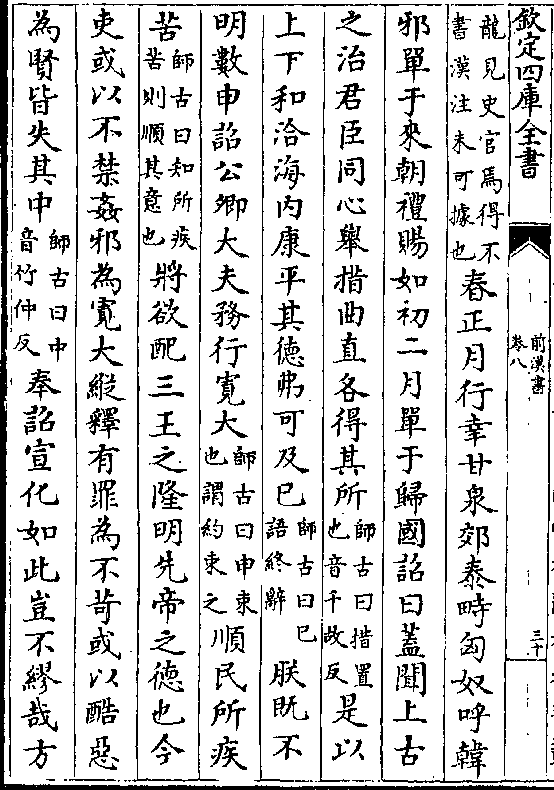 欽定四庫全書
前漢書
卷八
三十
龍見史官焉得不書漢注未可據也春正月行幸甘泉郊泰畤匈奴呼韓
邪單于來朝禮賜如初二月單于歸國詔曰蓋聞上古
之治君臣同心舉措曲直各得其所師古曰措置也音千故反是以
上下和洽海内康平其德弗可及已師古曰已語終辭朕既不
明數申詔公卿大夫務行寛大師古曰申束也謂約束之順民所疾
苦師古曰知所疾苦則順其意也將欲配三王之隆明先帝之德也今
吏或以不禁姦邪為寛大縱釋有罪為不苛或以酷惡
為賢皆失其中師古曰中音竹仲反奉詔宣化如此豈不繆哉方